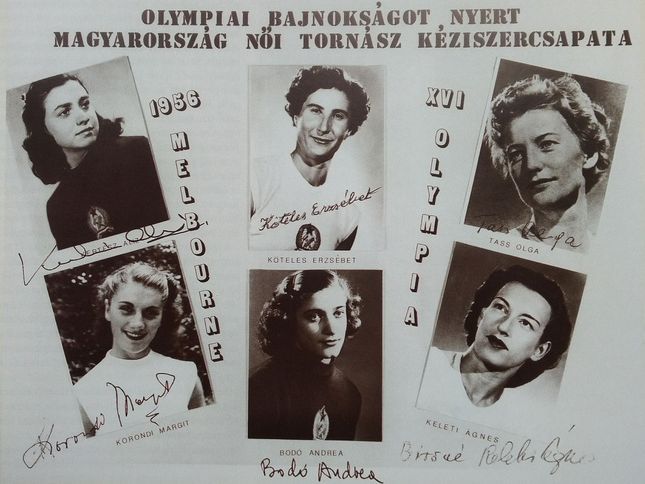 OLYMPIAI BAJNOKSÁGOT NYERT
MAGYARORSZÁG NŐI TORNÁSZ KÉZISZERCSAPATA
1956 MELBOURNE
XVI OLYMPIA
Köteles Erzsébet
KÖTELES ERZSÉBET
Tass Olga
TASS OLGA
Korondi Margit
KORONDI MARGIT
BODÓ ANDREA
Bodó Andrea
KELETI ÁGNES
Keleti Ágnes